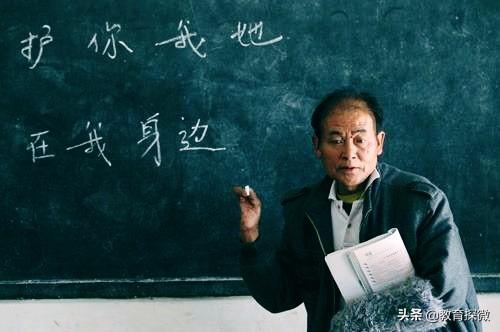 护你我她
在我身边
头条 @教育探微